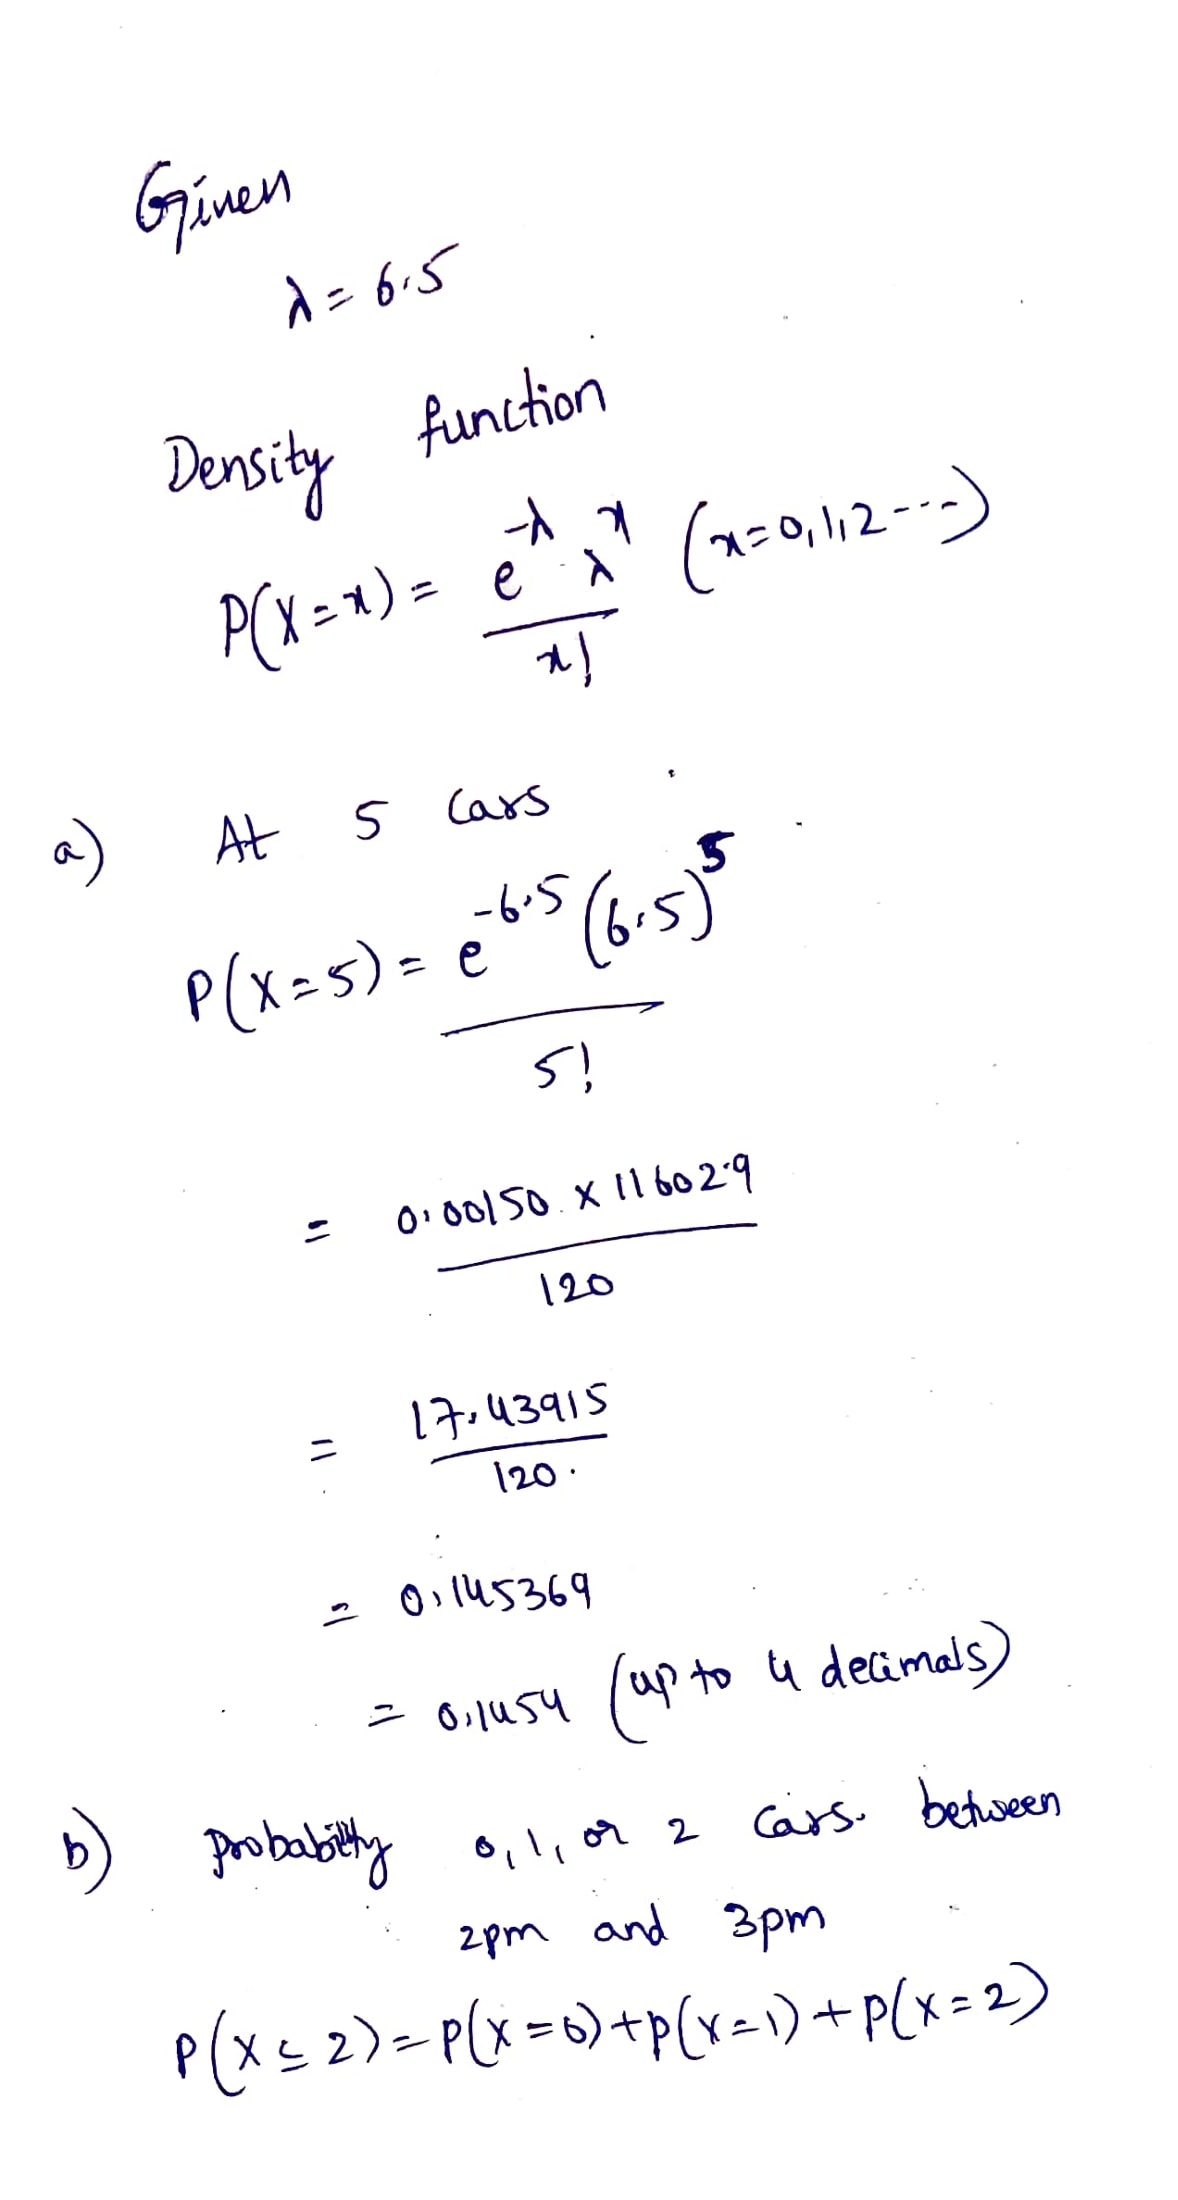 Given
λ = 6.5
Density function
P(X=x) = e^-λ λ^x (x=0,1,2---)
x!
a) At 5 Cars
P(X=5) = e^-6.5 (6.5)^5
5!
= 0.00150 x 11602.9
120
= 17.43915
120.
= 0.145369
= 0.1454 (up to 4 decimals)
b) Probability 0,1, or 2 Cars. between
2pm and 3pm
P(X≤2)=P(X=0)+P(X=1)+P(X=2)